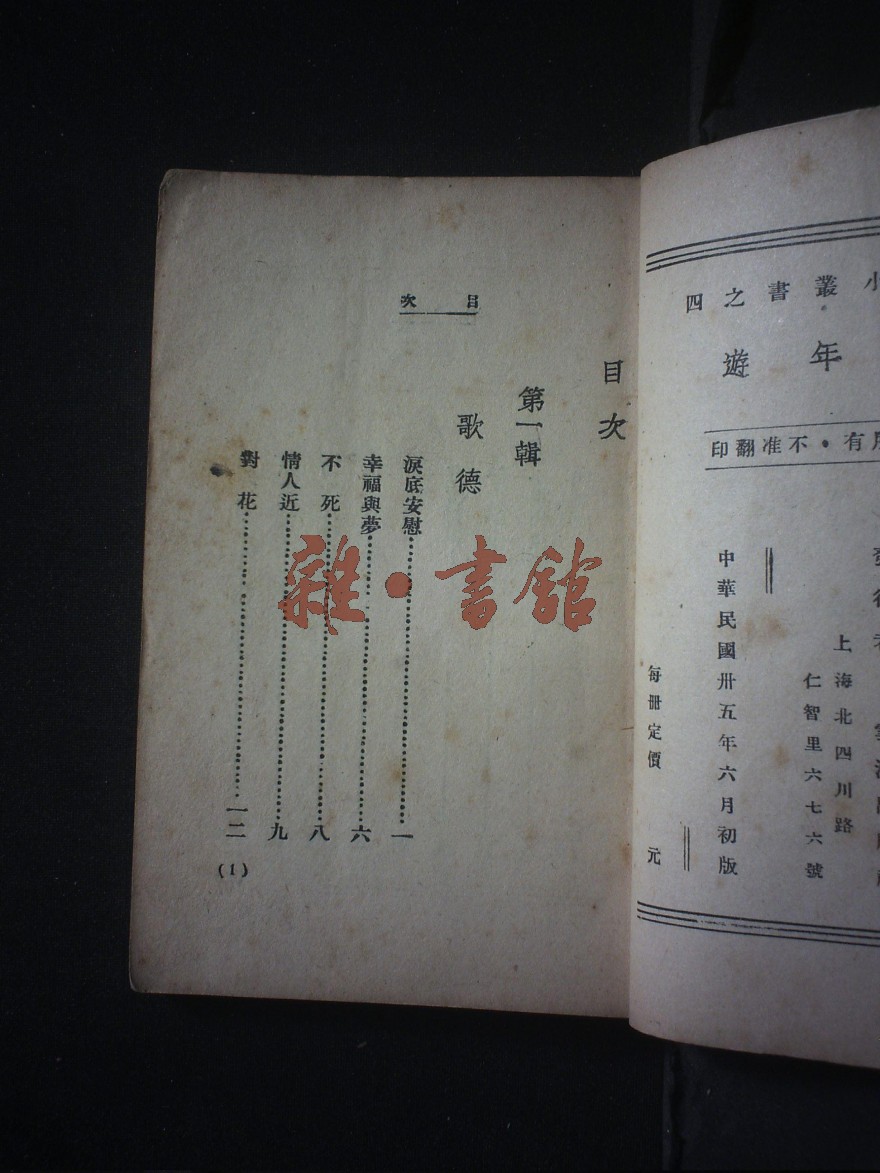 小叢書之四
年遊
有·不准翻印
上海北四川路
仁智里六七六號
中華民國卅五年六月初版
每冊定價　元
目次
目次
第一輯
歌德
淚底安慰⋯⋯一
幸福與夢⋯⋯六
不死⋯⋯八
情人近⋯⋯九
對花⋯⋯一二
(1)
雜·書館